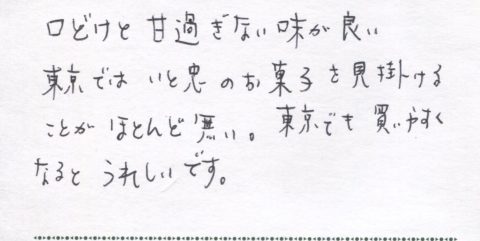 口どけと甘過ぎない味が良い
東京では いと忠のお菓子を見掛ける
ことがほとんど無い。東京でも買いやすく
なると うれしいです。